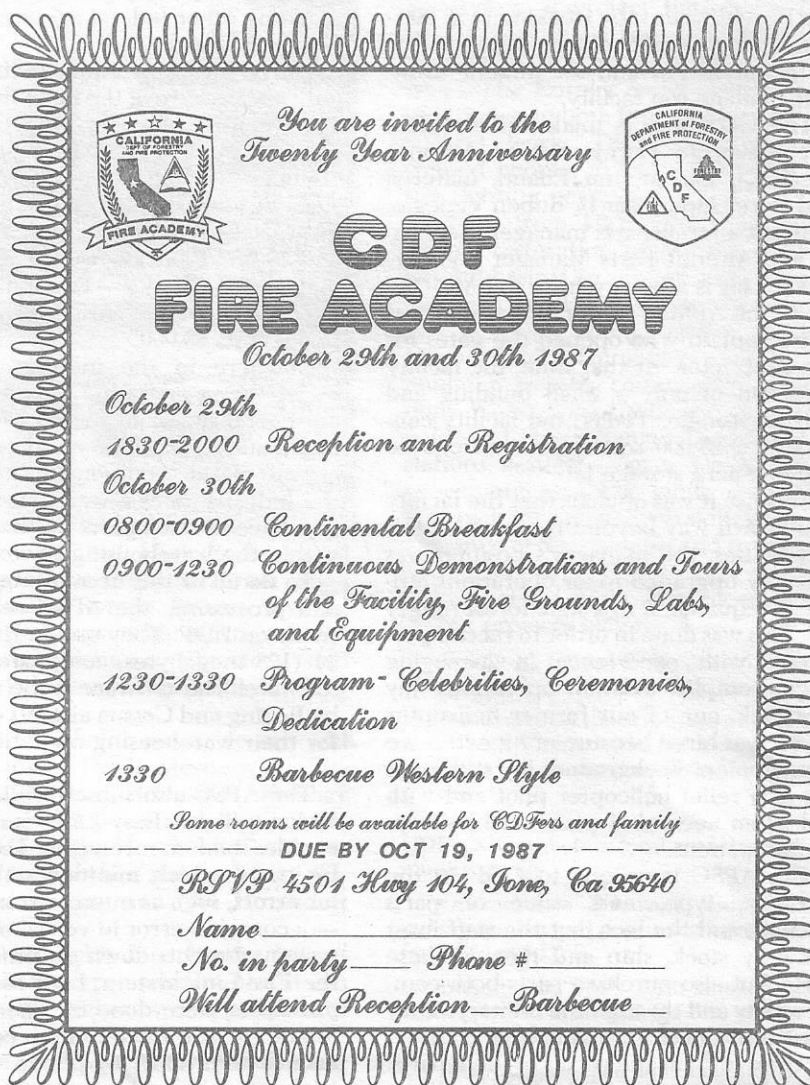 You are invited to the
Twenty Year Anniversary
CALIFORNIA
DEPT OF FORESTRY
AND FIRE PROTECTION
FIRE ACADEMY
CALIFORNIA
DEPARTMENT of FORESTRY
and FIRE PROTECTION
C
D
F
CDF
FIRE ACADEMY
October 29th and 30th 1987
October 29th
1830-2000 Reception and Registration
October 30th
0800-0900 Continental Breakfast
0900-1230 Continuous Demonstrations and Tours
of the Facility, Fire Grounds, Labs,
and Equipment
1230-1330 Program- Celebrities, Ceremonies,
Dedication
1330 Barbecue Western Style
Some rooms will be available for CDFers and family
DUE BY OCT 19, 1987
RSVP 4501 Hwy 104, Ione, Ca 95640
Name
No. in party Phone #
Will attend Reception Barbecue